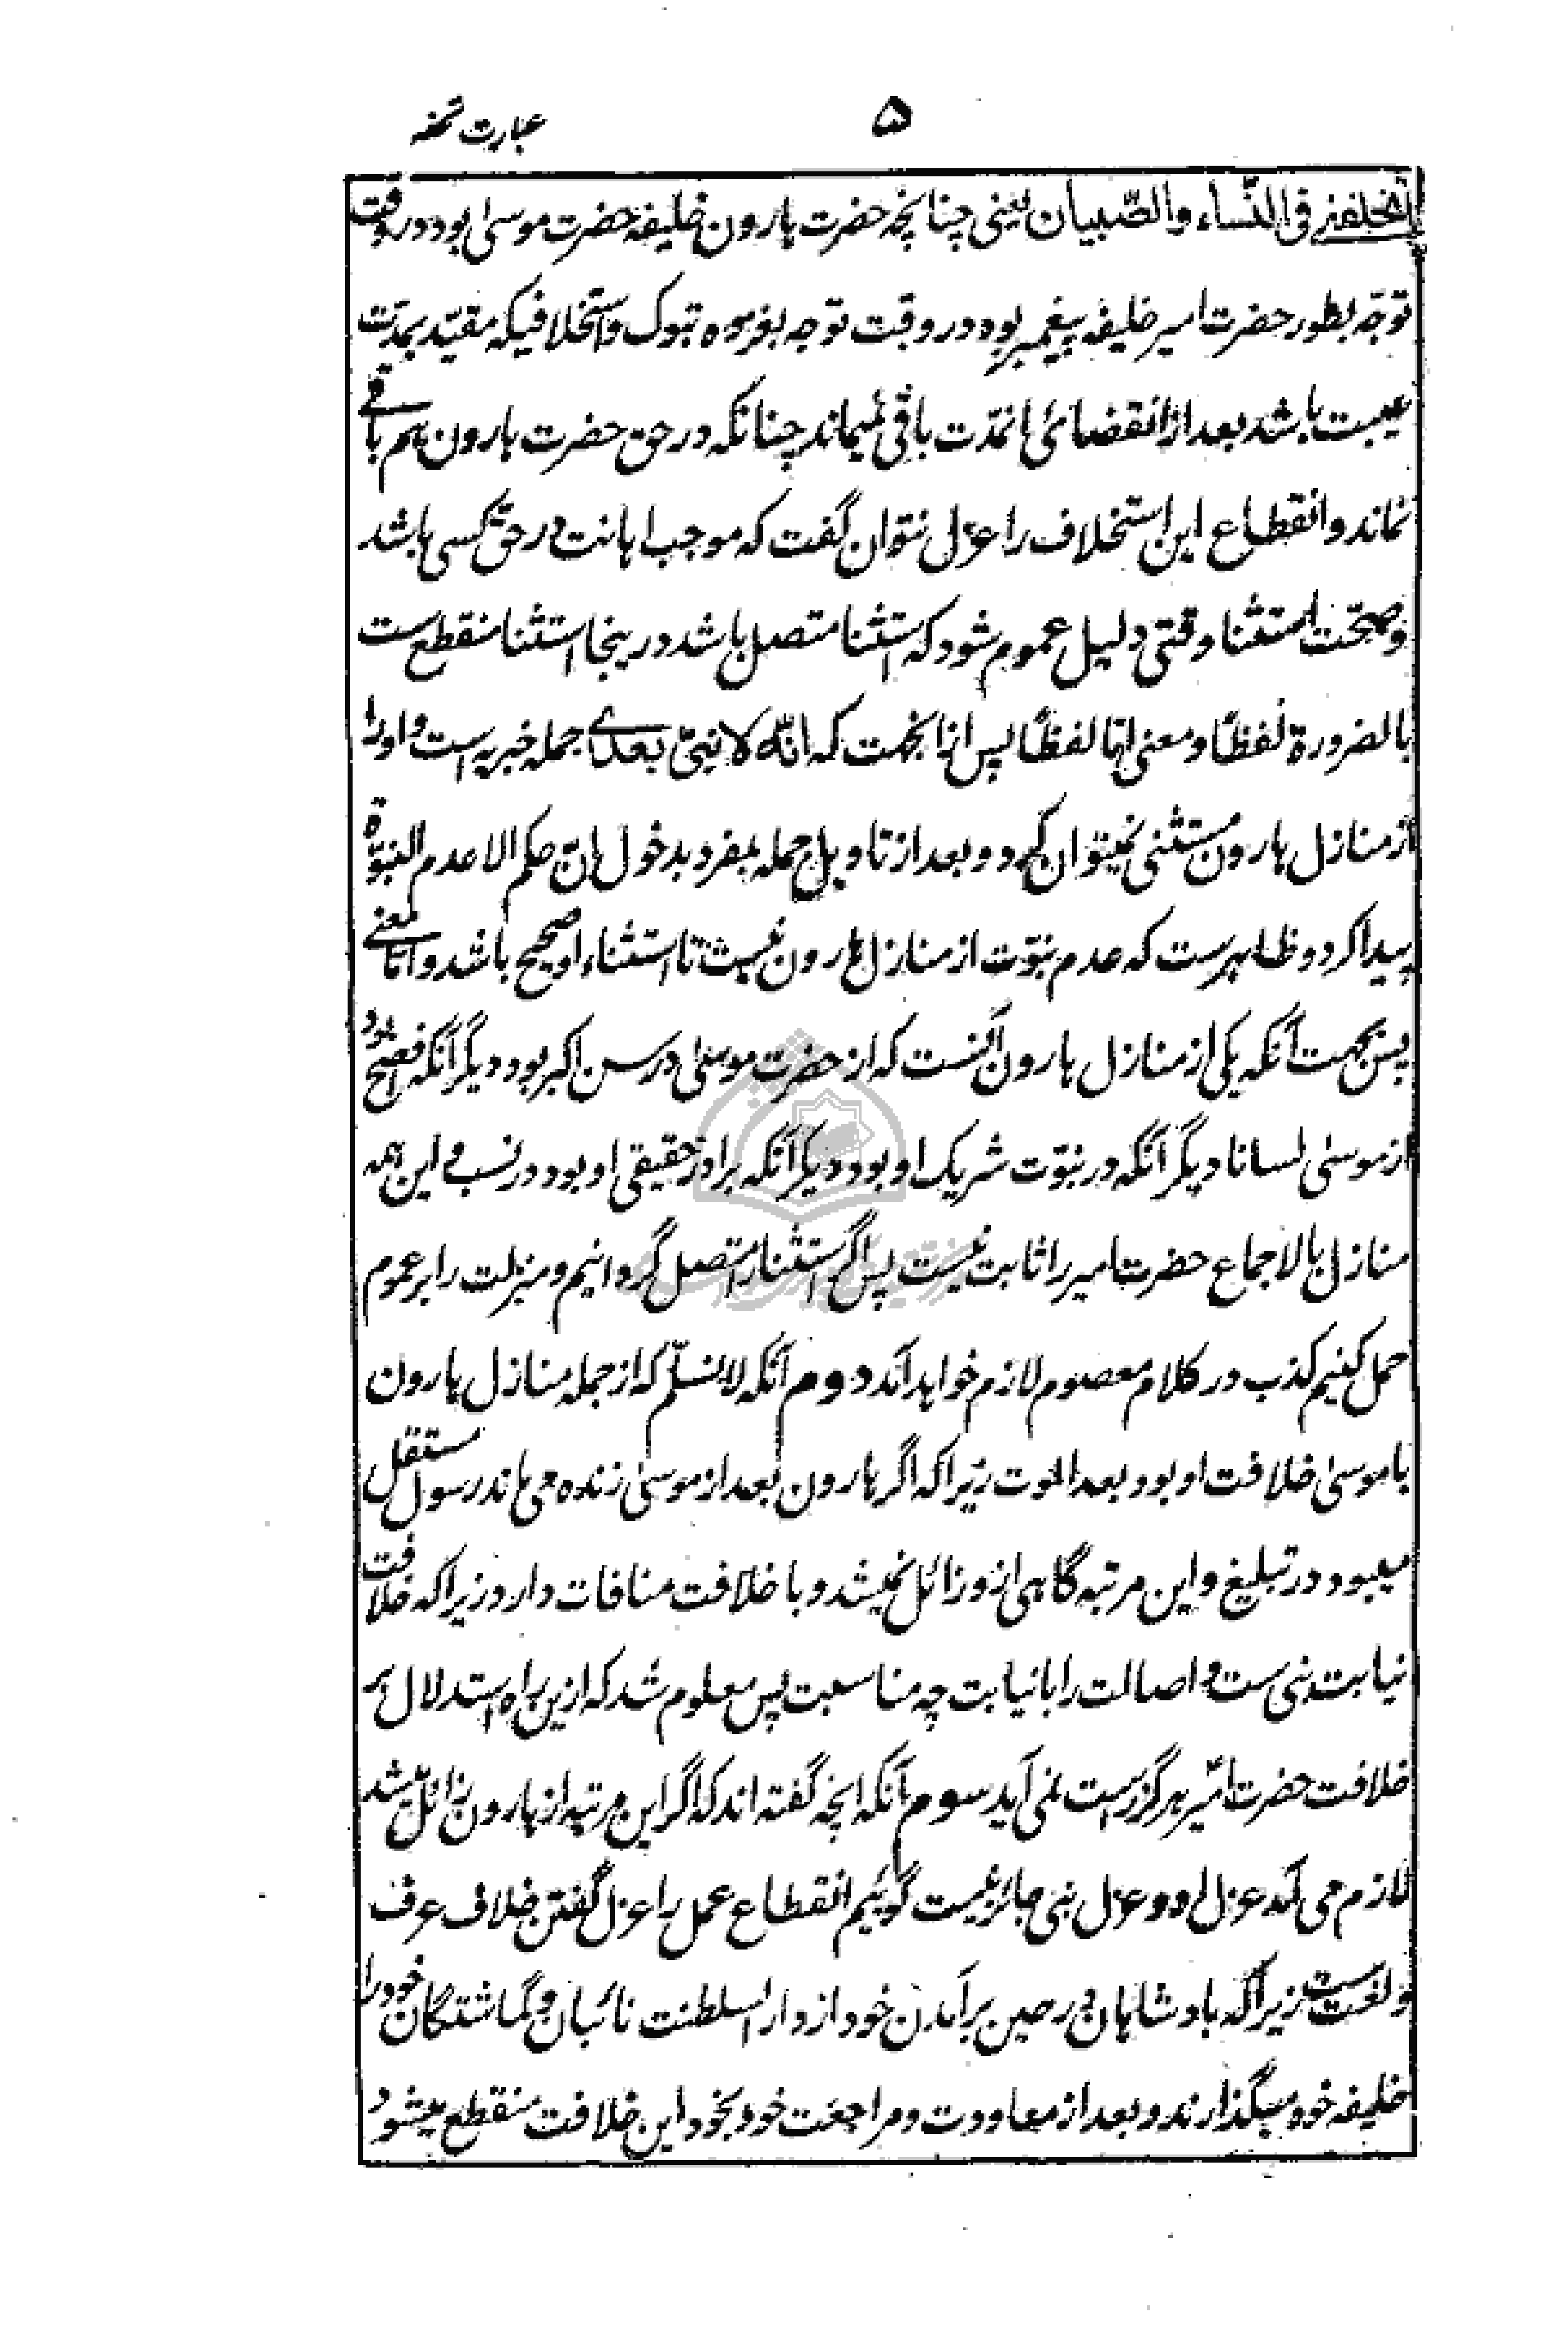 ۵
عبارت تحفه
أتخلفنے فی النّساء والصّبیان یعنی چنانچه حضرت هارون خلیفهٔ حضرت موسیٰ بود در وقت
توجّه بطور حضرت امیر خلیفه پیغمبر بود در وقت توجه بغزوه تبوک و استخلافیکه مقیّد بمدّت
غیبت باشد بعد از انقضائی انمدّت باقی نمیماند چنانکه در حق حضرت هارون هم باقے
نماند و انقطاع این استخلاف را عزل نتوان گفت که موجب اهانت در حق کسی باشد
و صحّت استثنا وقتی دلیل عموم شود که استثنا متصل باشد درینجا استثنا منقطع ست
بالضرورة لفظًا و معنی امّا لفظًا پس ازانجهت که انّه لا نبیّ بعدے جمله خبریه است و اورا
از منازل هارون مستثنی نمیتوان کرد و بعد از تاویل جمله بمفرد بدخول انّ حکم الا عدم النبوّة
پیدا کرد و ظاهرست که عدم نبوّت از منازل هارون نیست تا استثناء او صحیح باشد و امّا معنے
پس بجهت آنکه یکی از منازل هارون آنست که از حضرت موسیٰ در سن اکبر بود دیگر آنکه افصح بود
از موسیٰ لسانا دیگر آنکه در نبوّت شریک او بود دیگر آنکه برادر حقیقی او بود در نسب و این همه
منازل بالاجماع حضرت امیر را ثابت نیست پس اگر استثنا را متصل گردانیم و منزلت را بر عموم
حمل کنیم کذب در کلام معصوم لازم خواهد آمد دوم آنکه لا نسلّم که از جمله منازل هارون
با موسیٰ خلافت او بود بعد الموت زیرا که اگر هارون بعد از موسیٰ زنده می ماند رسول مستقل
میبود در تبلیغ و این مرتبه گاهی ازو زائل نمیشد و با خلافت منافات دارد زیرا که خلافت
نیابت نبی ست و اصالت را با نیابت چه مناسبت پس معلوم شد که ازین راه استدلال بر
خلافت حضرت امیر هرگز راست نمی آید سوم آنکه انچه گفته اند که اگر این مرتبه از هارون زائل میشد
لازم می آمد عزل او و عزل نبی جائز نیست گوئیم انقطاع عمل را عزل گفتن خلاف عرف
و لغت ست زیرا که بادشاهان در حین برآمدن خود از دار السلطنت نائبان و گماشتگان خود را
خلیفه خود میگذارند و بعد از معاودت و مراجعت خود بخود این خلافت منقطع میشود